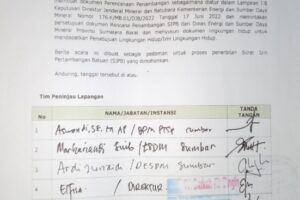 dokumen Perencanaan Pertambangan sebagaimana diatur dalam Lampiran I.B
Keputusan Direktur Jenderal Mineral dan Batubara Kementerian Energi dan Sumber Daya
Mineral Nomor 17 Juni 2022 dan
persetujuan dokumen Rencana Penambangan SIPB dari Dinas Energi dan Sumber Daya
Mineral Provinsi Sumatera Barat dan menyusun dokumen lingkungan hidup untuk
mendapatkan Persetujuan Lingkungan
Berita acara ini dibuat sebagai pedoman untuk proses penerbitan Surat Izin
Pertambangan Batuan (SIPB) yang dimohonkan.
Anduring, tanggal tersebut di atas.
Tim Peninjau Lapangan
NAMA/JABATAN/INSTANSI
TANDA
TANGAN
1
/ DPM PTSP Sumbar
2
/ ESDM Sumbar
3
Ardi Junaidi / DESDM Sumbar
4
/ DIREKTUR